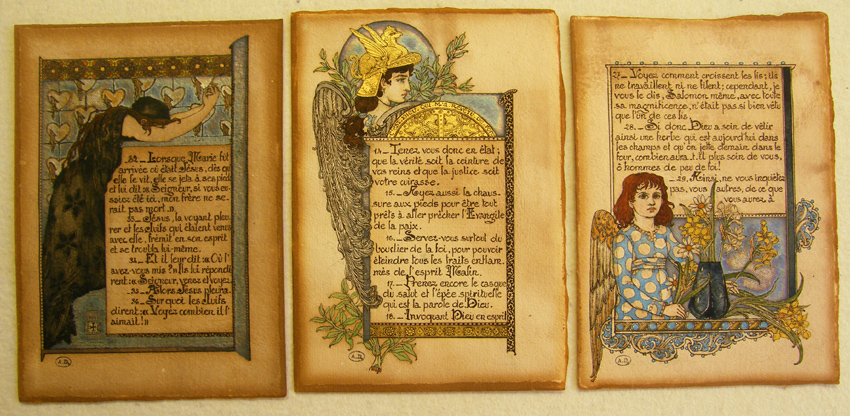 32_ Lorsque Marie fut
arrivée où était Jésus, dès qu'
elle le vit, elle se jeta à ses pieds
et lui dit: « Seigneur, si vous eus
siez été ici, mon frère ne se-
rait pas mort. »
33_ Jésus, la voyant pleu
rer et les Juifs qui étaient venus
avec elle, frémit en son esprit
et se troubla lui-même.
34_ Et il leur dit: « Où l'
avez-vous mis? » Ils lui répondi
rent: « Seigneur, venez et voyez.
35_ Alors Jésus pleura.
36_ Sur quoi les Juifs
dirent: « Voyez combien il l'
aimait! »
A.D.
14_ Tenez vous donc en état;
que la vérité soit la ceinture de
vos reins et que la justice soit
votre cuirasse.
15_ Ayez aussi la chaus_
sure aux pieds pour être tout
prêts à aller prêcher l'Evangile
de la paix.
16_ Servez-vous surtout du
bouclier de la foi, pour pouvoir
éteindre tous les traits enflam_
més de l'esprit Malin.
17_ Prenez encore le casque
du salut et l'épée spirituelle
qui est la parole de Dieu.
18_ Invoquant Dieu en esprit
A.D.
27_ Voyez comment croissent les lis; ils
ne travaillent ni ne filent; cependant, je
vous le dis, Salomon même, avec toute
sa magnificence, n'était pas si bien vêtu
que l'un de ces lis.
28_ Si donc Dieu a soin de vêtir
ainsi une herbe qui est aujourd'hui dans
les champs et qu'on jette demain dans le
four, combien aura_t_il plus soin de vous,
ô hommes de peu de foi!
29_ Ainsi, ne vous inquiétez
pas, vous autres, de ce que
vous aurez à
A.D.